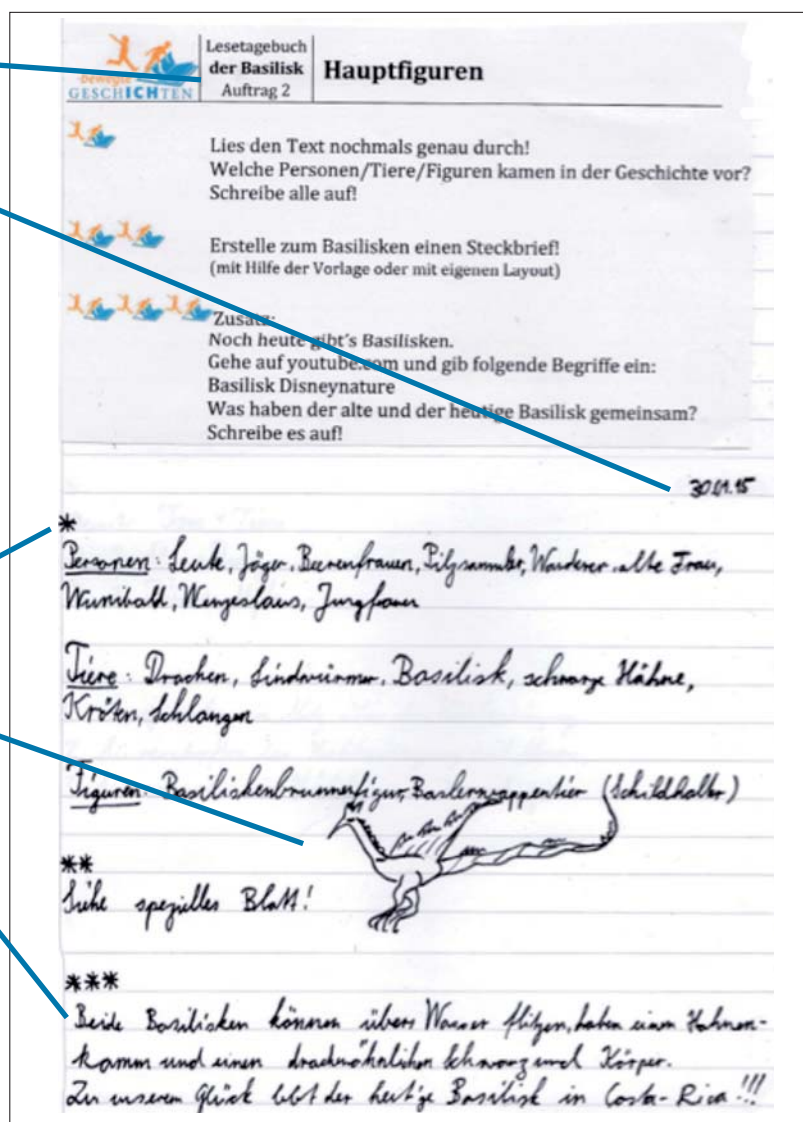 bewegte
GESCHICHTEN
Lesetagebuch
der Basilisk
Auftrag 2
Hauptfiguren
Lies den Text nochmals genau durch!
Welche Personen/Tiere/Figuren kamen in der Geschichte vor?
Schreibe alle auf!
Erstelle zum Basilisken einen Steckbrief!
(mit Hilfe der Vorlage oder mit eigenen Layout)
Zusatz:
Noch heute gibt's Basilisken.
Gehe auf youtube.com und gib folgende Begriffe ein:
Basilisk Disneynature
Was haben der alte und der heutige Basilisk gemeinsam?
Schreibe es auf!
30.01.15
*
Personen: Leute, Jäger, Beerenfrauen, Pilzsammler, Wanderer, alte Frau,
Wunibald, Wenzeslaus, Jungfrauen
Tiere: Drachen, Lindwürmer, Basilisk, schwarze Hähne,
Kröten, Schlangen
Figuren: Basiliskenbrunnenfigur, Baslerwappentier (Schildhalter)
**
Siehe spezielles Blatt!
***
Beide Basilisken können übers Wasser flitzen, haben einen Hahnen-
kamm und einen drachenähnlichen Schwanz und Körper.
Zu unserem Glück lebt der heutige Basilisk in Costa-Rica!!!